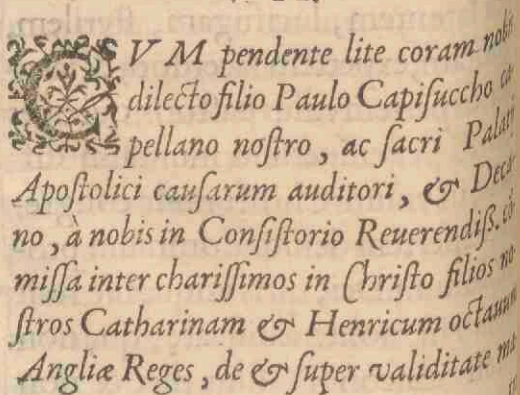 CVM pendente lite coram nobis
dilecto filio Paulo Capiſuccho ca
pellano noſtro, ac ſacri Palatij
Apoſtolici cauſarum auditori, & Deca
no, à nobis in Conſiſtorio Reuerendiſſ. cō
miſſa inter chariſſimos in Chriſto filios no
ſtros Catharinam & Henricum octauum
Angliæ Reges, de & ſuper validitate ma